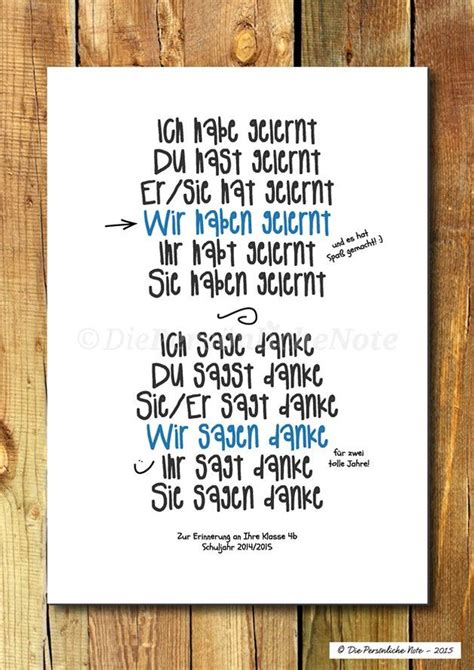 Ich habe gelernt
Du hast gelernt
Er/Sie hat gelernt
Wir haben gelernt
und es hat
Spaß gemacht! :)
Ihr habt gelernt
Sie haben gelernt
© DiePersönlicheNote
Ich sage danke
Du sagst danke
Sie/Er sagt danke
Wir sagen danke
für zwei
tolle Jahre!
Ihr sagt danke
Sie sagen danke
Zur Erinnerung an Ihre Klasse 4b
Schuljahr 2014/2015
© Die Persönliche Note - 2015